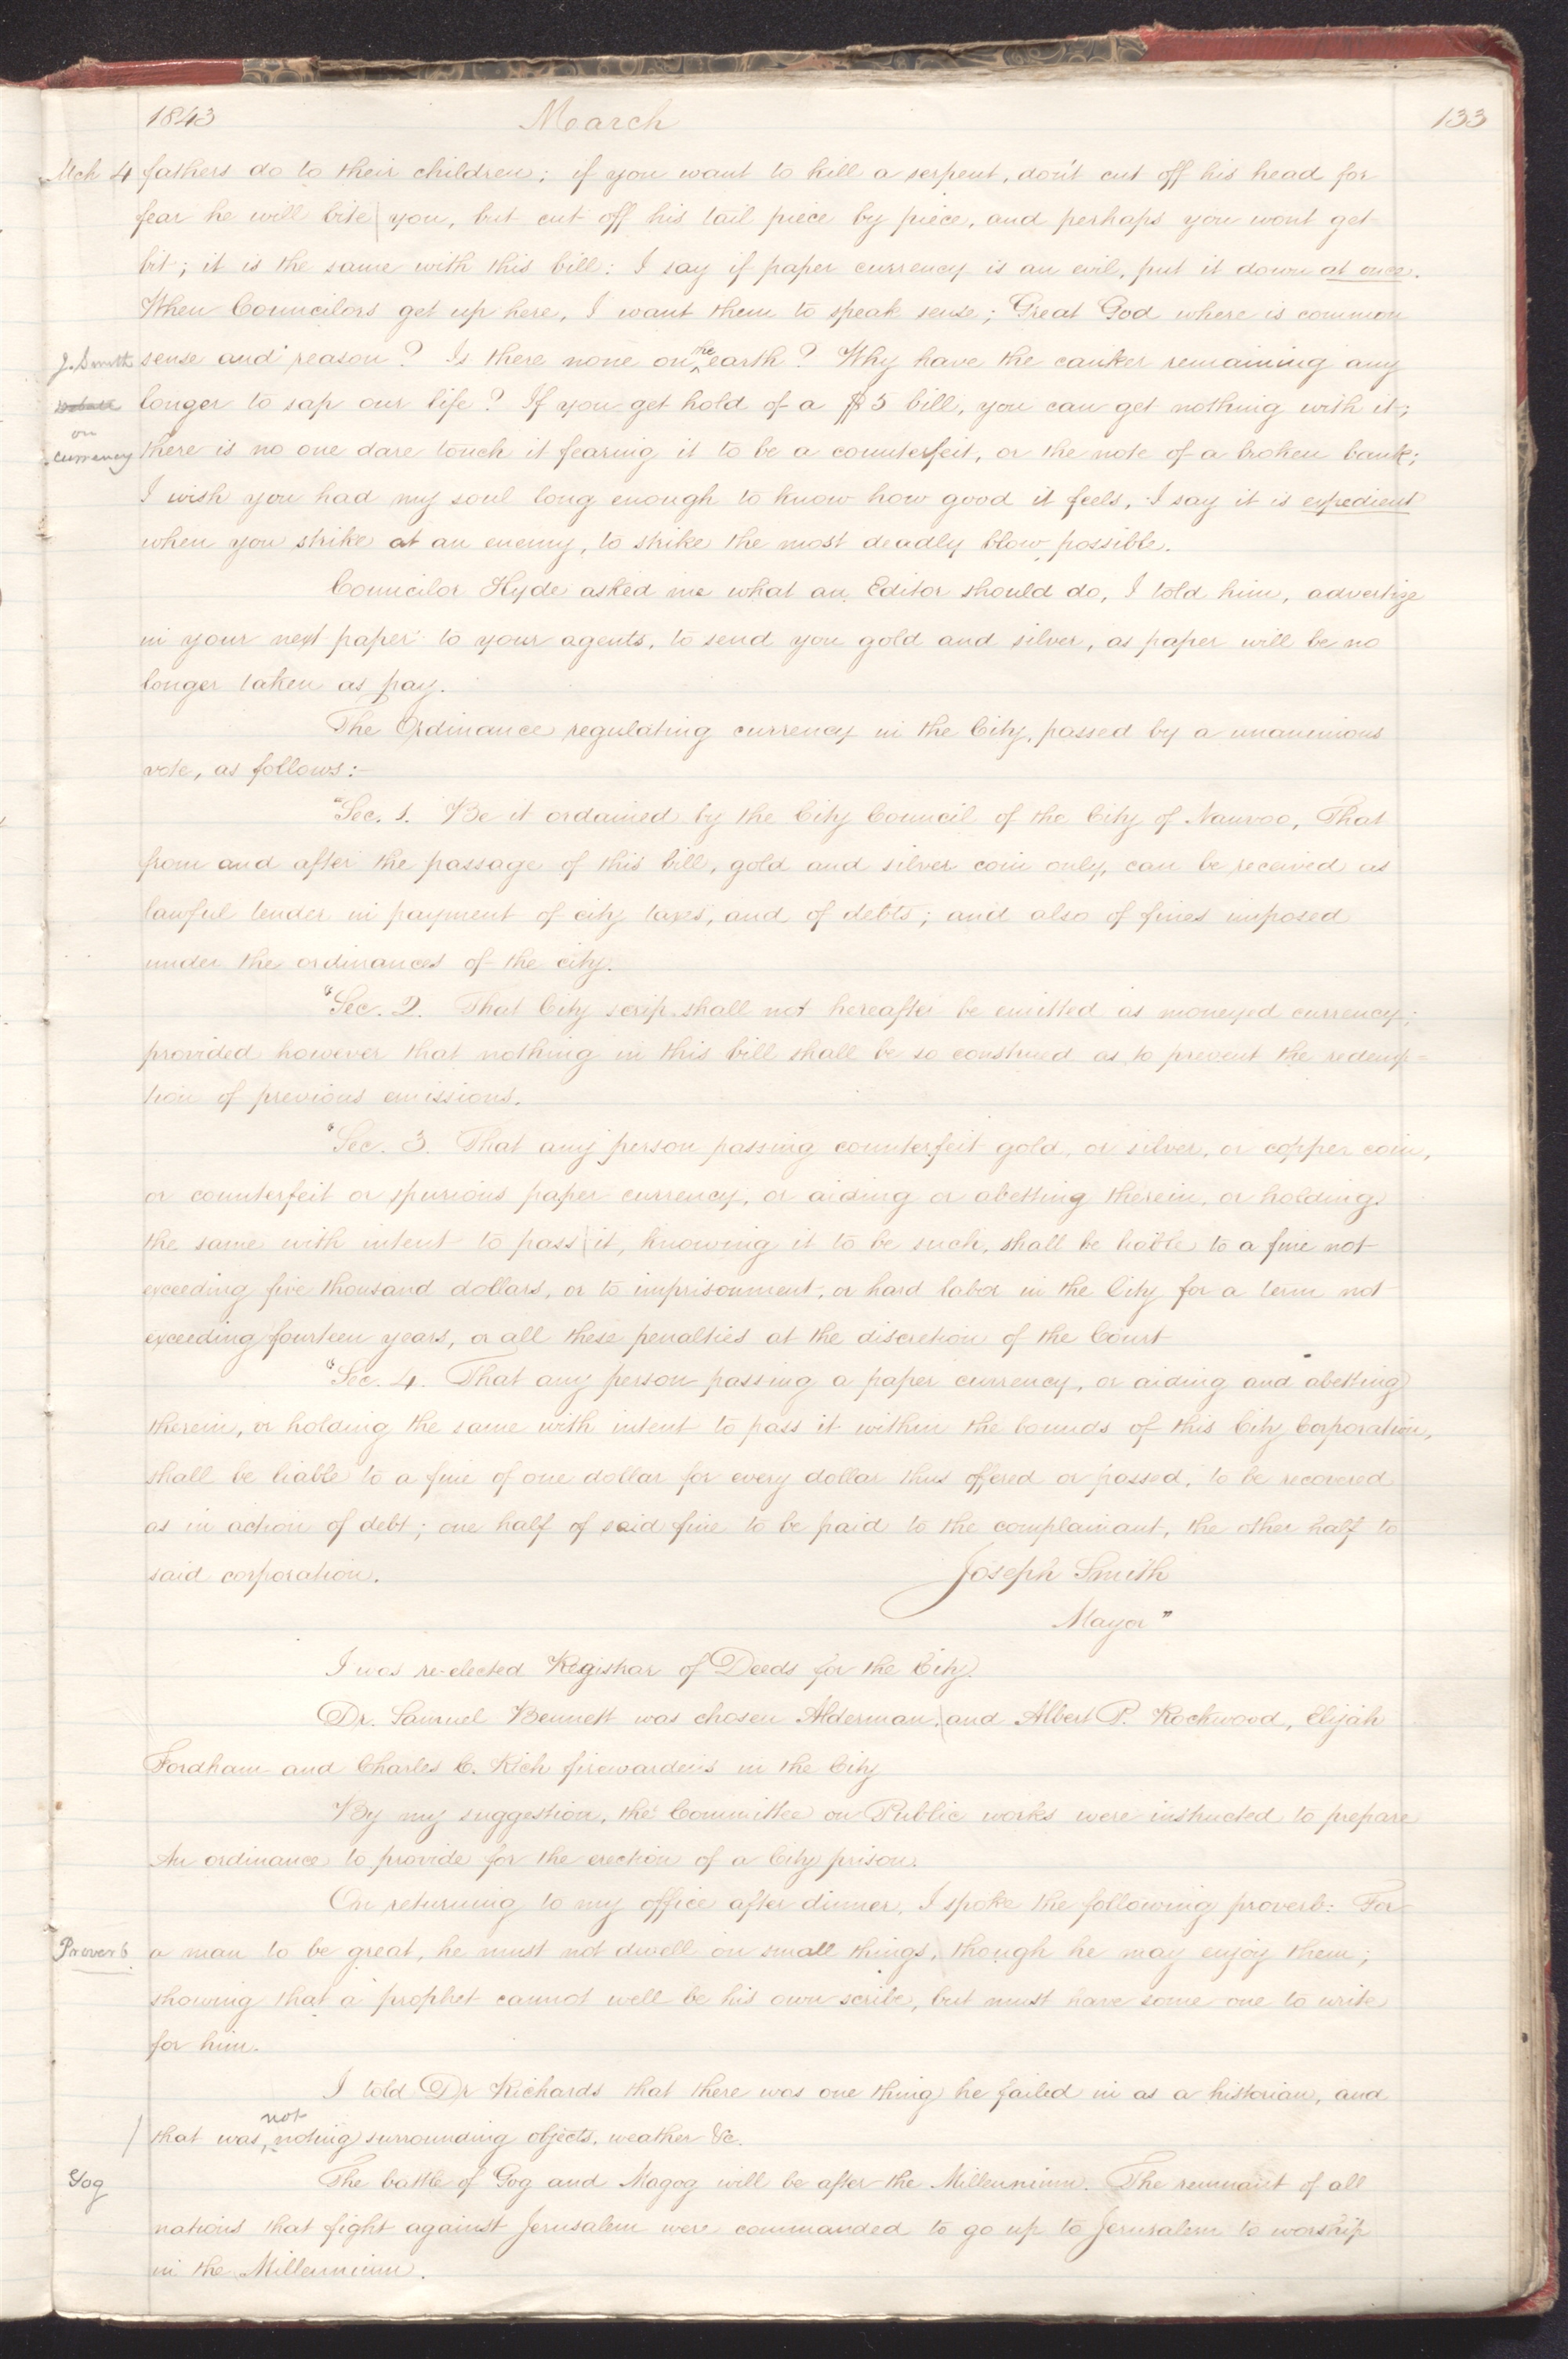 1843 March 133
Mch 4 fathers do to their children; if you want to kill a serpent, don't cut off his head for
fear he will bite you, but cut off his tail piece by piece, and perhaps you wont get
bit; it is the same with this bill: I say if paper currency is an evil, put it down at once.
When Councilors get up here, I want them to speak sense; Great God where is common
J. Smith sense and reason? Is there none on the earth? Why have the canker remaining any
longer to sap our life? If you get hold of a $5 bill, you can get nothing with it;
on
currency there is no one dare touch it fearing it to be a counterfeit, or the note of a broken bank;
I wish you had my soul long enough to know how good it feels. I say it is expedient
when you strike at an enemy, to strike the most deadly blow possible.
Councilor Hyde asked me what an Editor should do, I told him, advertize
in your next paper to your agents, to send you gold and silver, as paper will be no
longer taken as pay.
The Ordinance regulating currency in the City, passed by a unanimous
vote, as follows:—
"Sec. 1. Be it ordained by the City Council of the City of Nauvoo, That
from and after the passage of this bill, gold and silver coin only, can be received as
lawful tender in payment of city taxes, and of debts; and also of fines imposed
under the ordinances of the city.
"Sec. 2. That City scrip shall not hereafter be emitted as moneyed currency;
provided however that nothing in this bill shall be so construed as to prevent the redemp=
tion of previous emissions.
"Sec. 3. That any person passing counterfeit gold, or silver, or copper coin,
or counterfeit or spurious paper currency, or aiding or abetting therein, or holding
the same with intent to pass it, knowing it to be such, shall be liable to a fine not
exceeding five thousand dollars, or to imprisonment, or hard labor in the City for a term not
exceeding fourteen years, or all these penalties at the discretion of the Court
"Sec. 4. That any person passing a paper currency, or aiding and abetting
therein, or holding the same with intent to pass it within the bounds of this City Corporation,
shall be liable to a fine of one dollar for every dollar thus offered or passed, to be recovered
as in action of debt; one half of said fine to be paid to the complainant, the other half to
said corporation. Joseph Smith
Mayor"
I was re-elected Registrar of Deeds for the City.
Dr. Samuel Bennett was chosen Alderman, and Albert P. Rockwood, Elijah
Fordham and Charles C. Rich firewardens in the City
By my suggestion, the Committee on Public works were instructed to prepare
An ordinance to provide for the erection of a City prison.
On returning to my office after dinner, I spoke the following proverb: For
Proverb a man to be great, he must not dwell on small things, though he may enjoy them;
showing that a prophet cannot well be his own scribe, but must have some one to write
for him.
I told Dr Richards that there was one thing he failed in as a historian, and
that was not noting surrounding objects, weather &c.
Gog The battle of Gog and Magog will be after the Millennium. The remnant of all
nations that fight against Jerusalem were commanded to go up to Jerusalem to worship
in the Millennium.